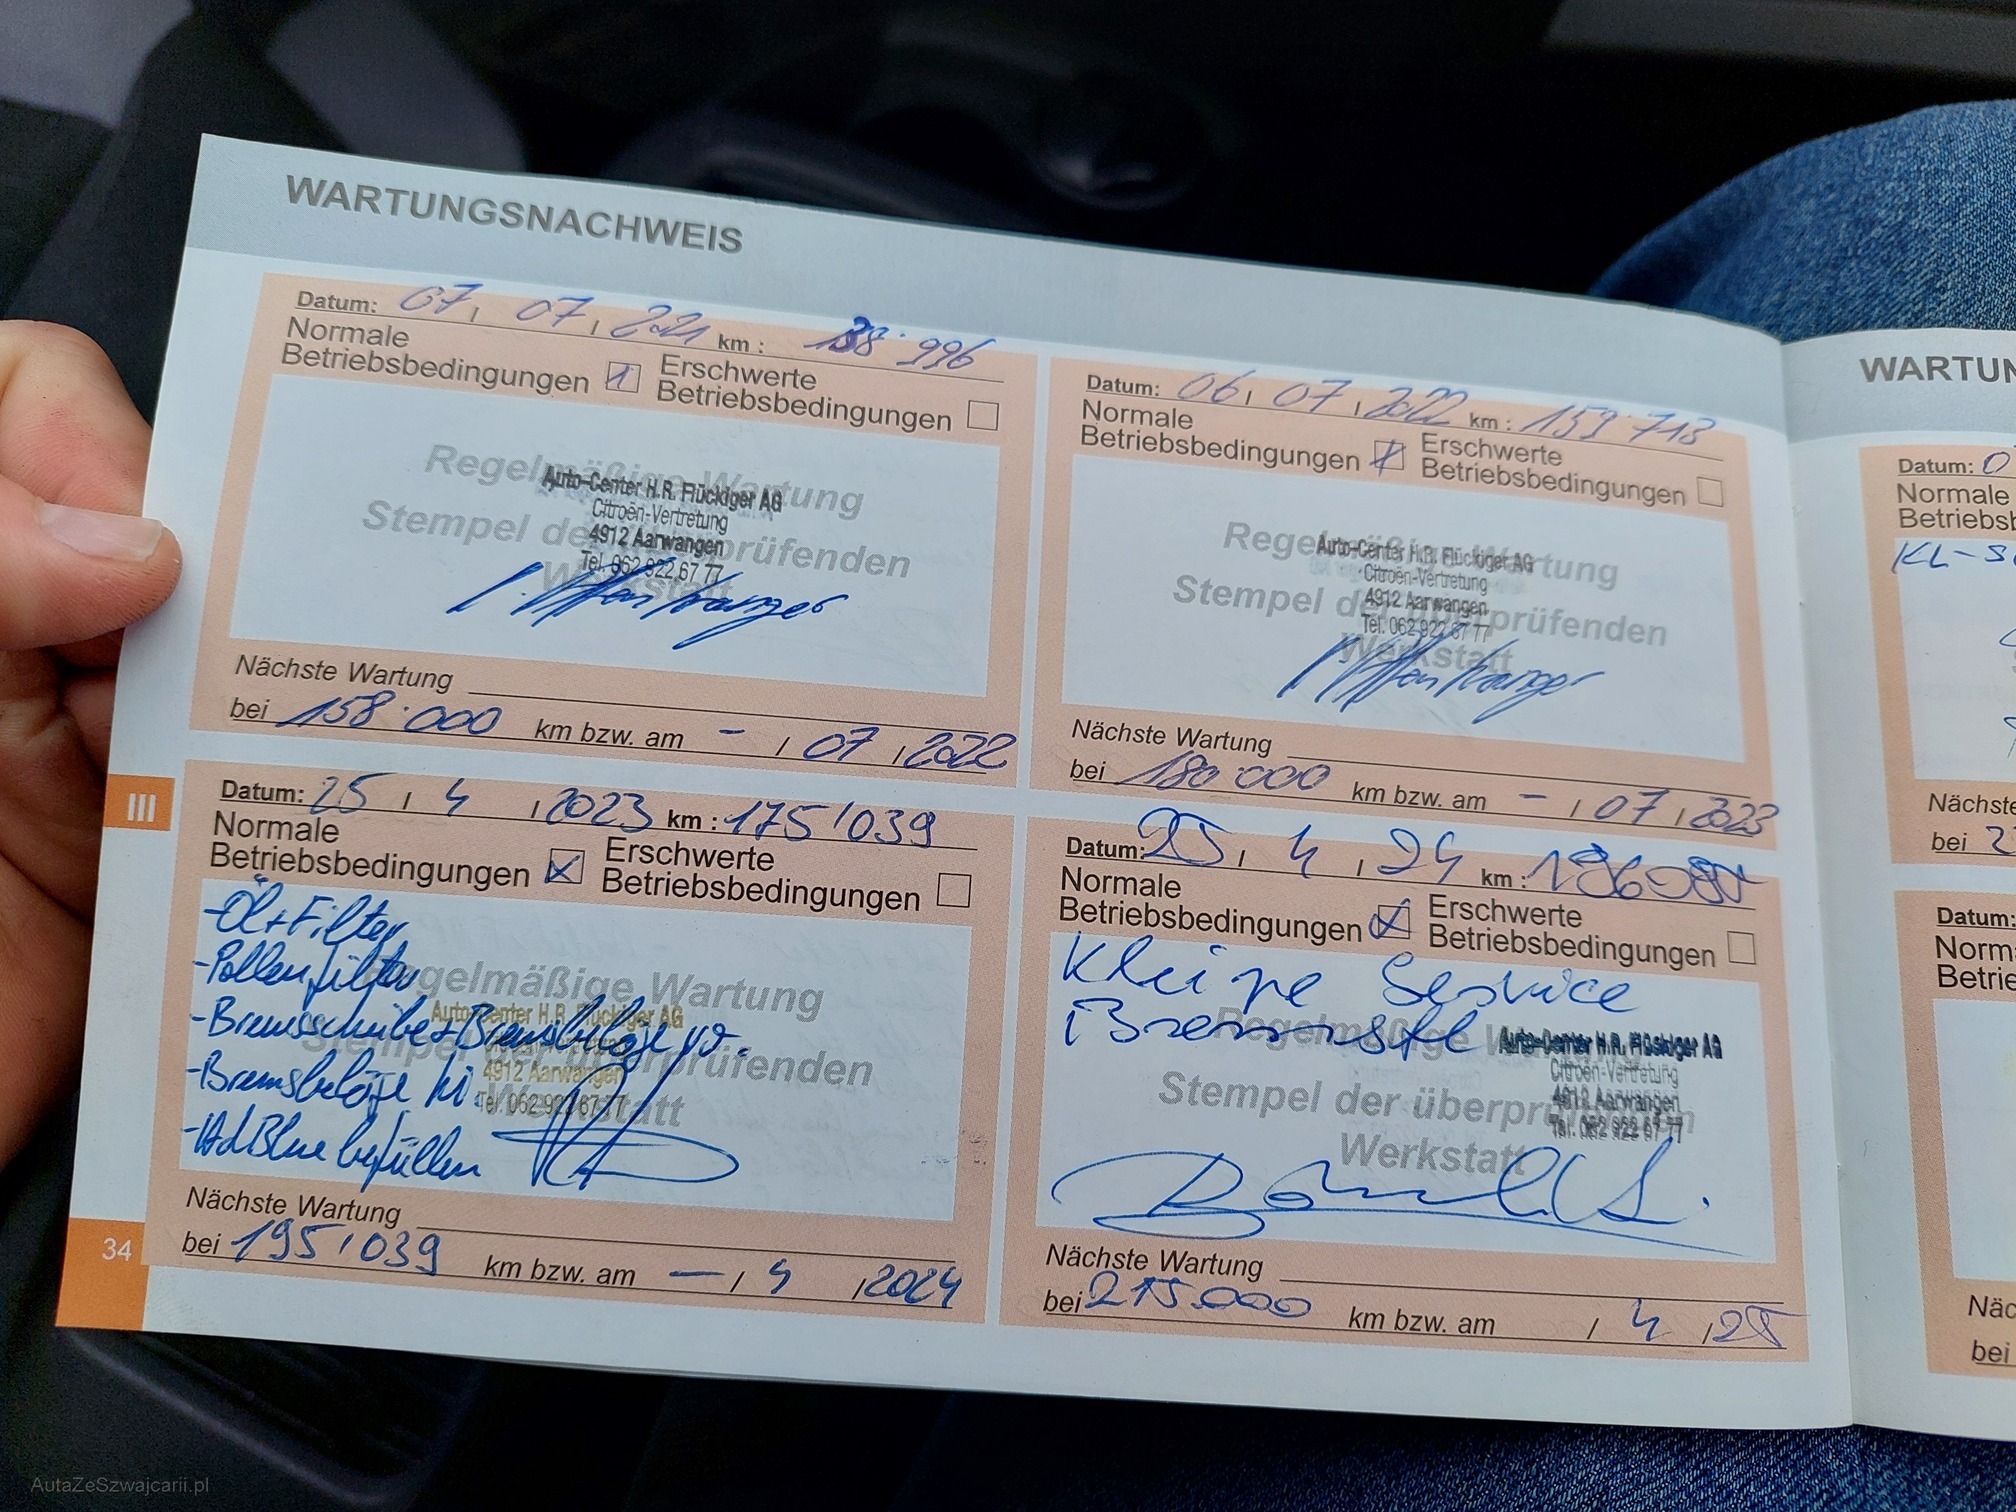 WARTUNGSNACHWEIS
Datum: 07, 07, 2021 km: 138·996
Normale Betriebsbedingungen Erschwerte Betriebsbedingungen
Regelmäßige Wartung
Stempel der überprüfenden
Werkstatt
Auto-Center H.R. Flückiger AG
Citroën-Vertretung
4912 Aarwangen
Tel. 062 922 67 77
Nächste Wartung
bei 158·000 km bzw. am - / 07 / 2022
Datum: 06, 07, 2022 km: 159·713
Normale Betriebsbedingungen Erschwerte Betriebsbedingungen
Regelmäßige Wartung
Stempel der überprüfenden
Werkstatt
Auto-Center H.R. Flückiger AG
Citroën-Vertretung
4912 Aarwangen
Tel. 062 922 67 77
Nächste Wartung
bei 180·000 km bzw. am - / 07 / 2023
III
Datum: 25 / 4 / 2023 km: 175'039
Normale Betriebsbedingungen Erschwerte Betriebsbedingungen
-Öl+Filter
-Pollenfilter
-Bremsscheibe+Bremsbeläge vo.
-Bremsbeläge hi.
-AdBlue befüllen
Regelmäßige Wartung
Stempel der überprüfenden
Werkstatt
Auto-Center H.R. Flückiger AG
4912 Aarwangen
Tel. 062 922 67 77
Nächste Wartung
bei 195'039 km bzw. am - / 4 / 2024
34
Datum: 25 / 4 / 24 km:
Normale Betriebsbedingungen Erschwerte Betriebsbedingungen
Kleine Service
Regelmäßige
Stempel der überprüfenden
Werkstatt
Auto-Center H.R. Flückiger AG
Citroën-Vertretung
4912 Aarwangen
Tel. 062 922 67 77
Nächste Wartung
bei 215.000 km bzw. am / 4 / 25
WARTUN
Datum: 0
Normale
Betriebsb
KL-S
Nächste
bei 2
Datum:
Norm
Betrie
Näc
bei
AutaZeSzwajcarii.pl